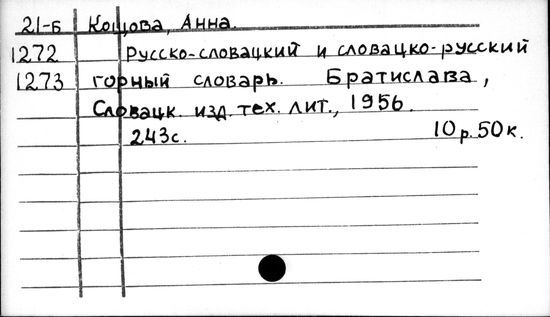 21-Б Кощова, Анна.
1272 Русско-словацкий и словацко-русский
1273 горный словарь. Братислава,
Словацк. изд. тех. лит., 1956.
243с. 10р.50к.